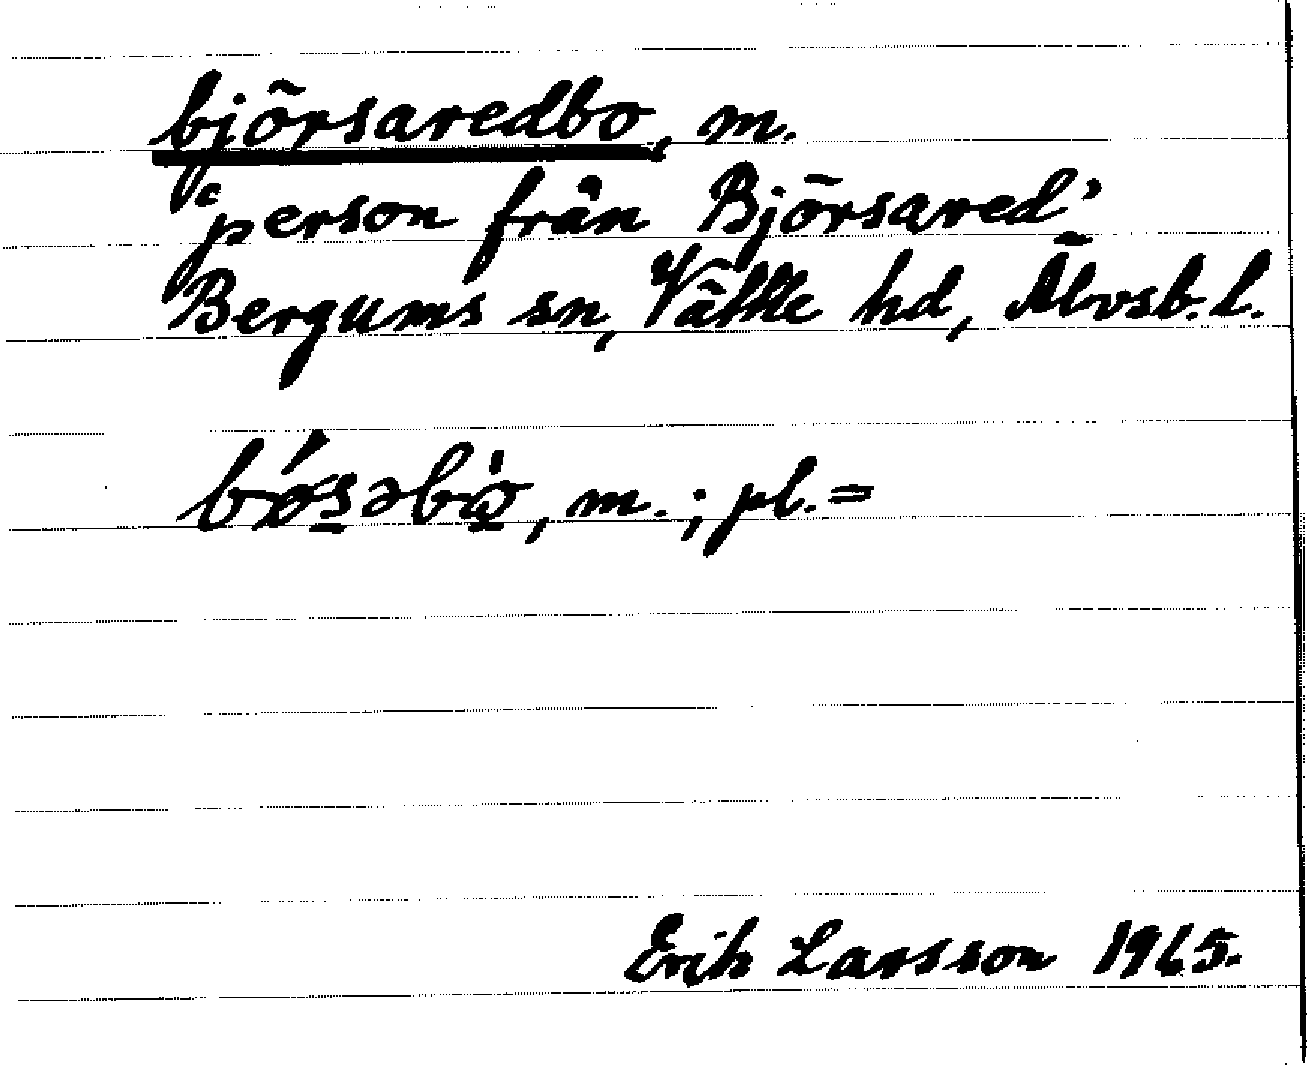 björsaredbo, m.
'person från Björsared'
Bergums sn, Vättle hd, Älvsb. l.
m.; pl. =
Erik Larsson 1965.